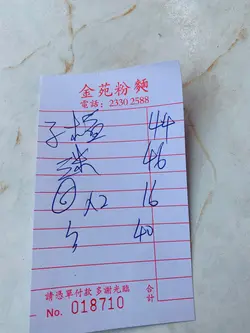 金苑粉麵
電話：2330 2588
44
46
X2 16
40
請憑單付款 多謝光臨
合計
No. 018710